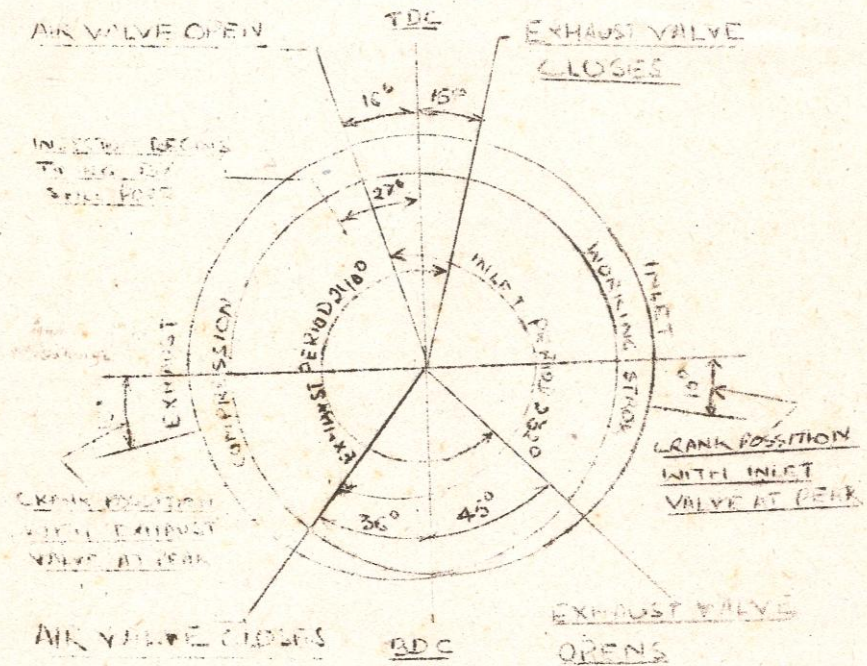 AIR VALVE OPEN
TDC
EXHAUST VALVE
CLOSES
16°
15°
BEGINS
27°
INLET PERIOD 2320
EXHAUST PERIOD 2400
COMPRESSION
EXHAUST
WORKING STROK
INLET
10°
CRANK POSSITION
WITH INLET
VALVE AT PEAK
CRANK POSSITION
WITH EXHAUST
VALVE AT PEAK
36°
45°
AIR VALVE CLOSES
BDC
EXHAUST VALVE
OPENS